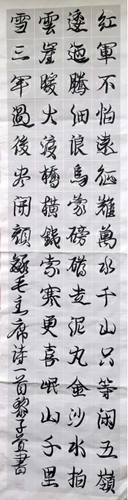 紅軍不怕遠征難萬水千山只等闲五嶺
逶迤騰細浪烏蒙磅礴走泥丸金沙水拍
雲崖暖大渡橋橫鐵索寒更喜岷山千里
雪三軍過後尽開顏錄毛主席詩一首黎子書